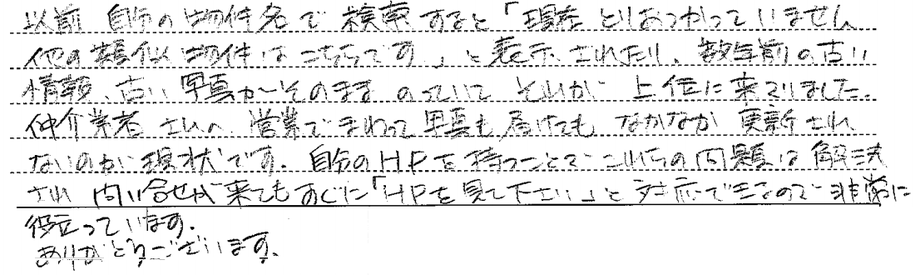 以前 自分の物件名で検索すると「現在とりあつかっていません
他の類似物件はこちらです。」と表示されたり、数年前の古い
情報、古い写真がそのままのっていて それが 上位に来ていました。
仲介業者さんへ営業でまわって写真も届けても なかなか 更新され
ないのが現状です。自分のHPを持つことでこれらの問題は解決
され 問い合せが来てもすぐに「HPを見て下さい」と対応できるので非常に
役立っています。
ありがとうございます。